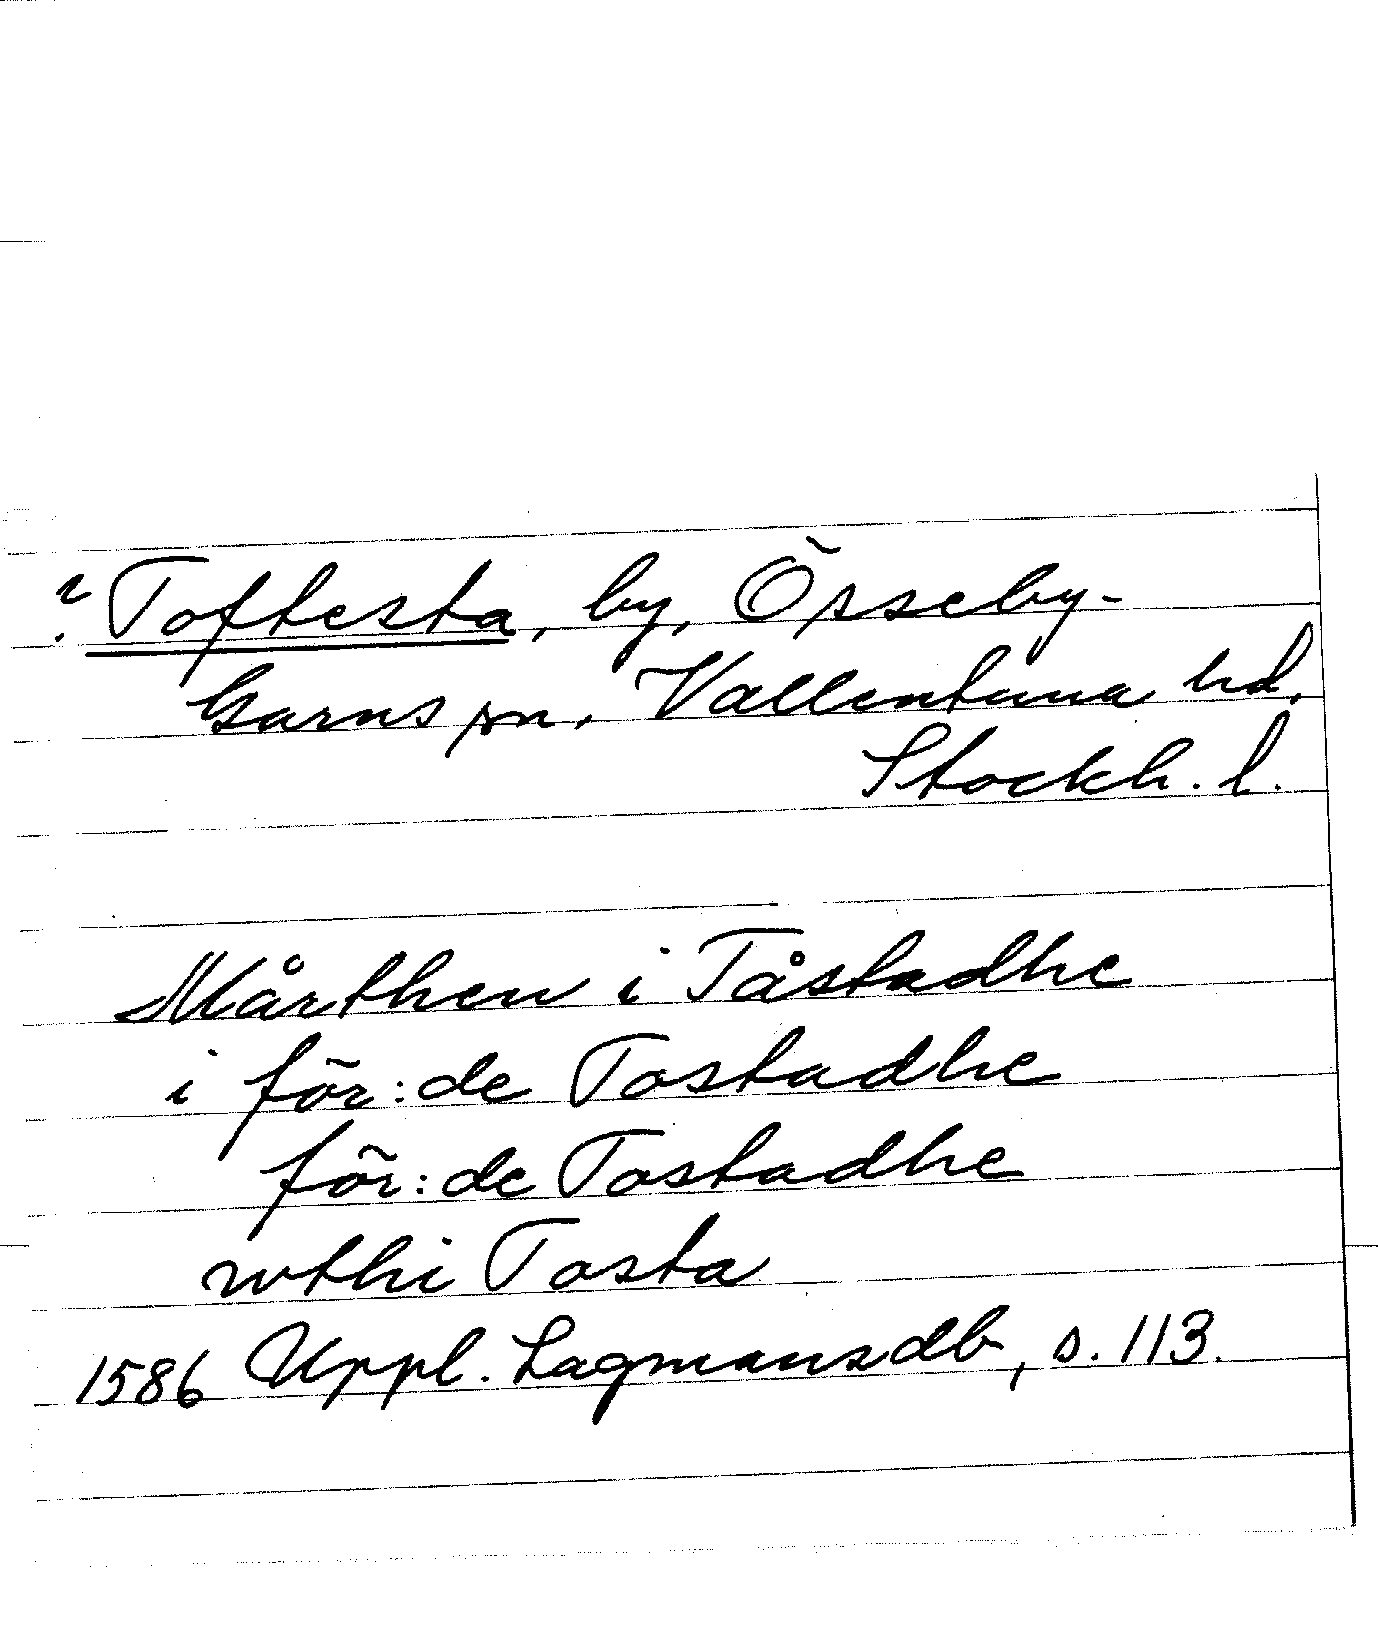 ? Toftesta, by, Össeby-
Garns sn. Vallentuna hd,
Stockh. l.
Mårthen i Tåstadhe
i för:de Tostadhe
för:de Tostadhe
wthi Tosta
1586 Uppl. Lagmansdb, s. 113.